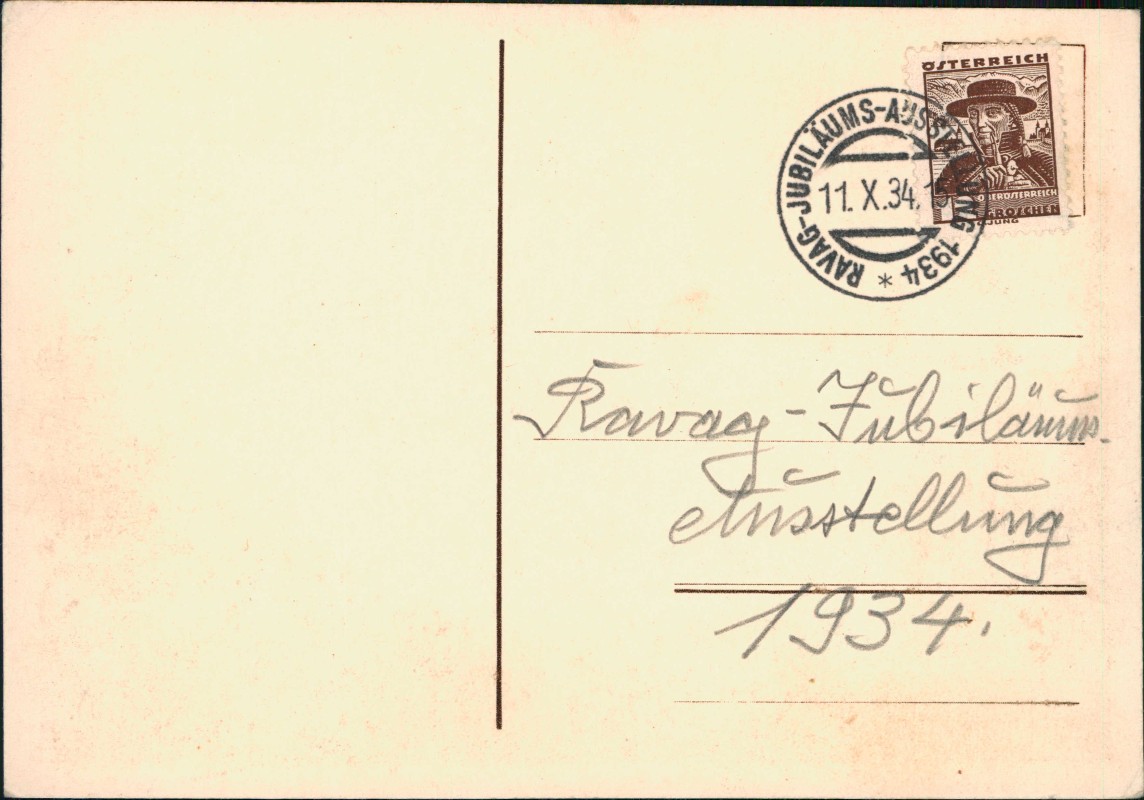 ÖSTERREICH
OBERÖSTERREICH
GROSCHEN
JUNG
RAVAG-JUBILÄUMS-AUSSTELLUNG 1934 *
11. X. 34. 15
Ravag-Jubiläums-
Ausstellung
1934.